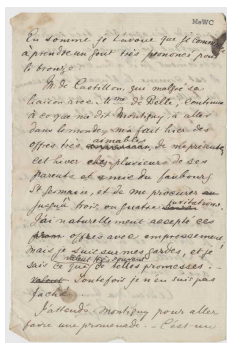 MaWC
En somme je t'avoue que je commence
à prendre un goût très prononcé pour
le bronze.
M. de Castillon, qui malgré sa
liaison avec Mme de Belle, continue
à ce que me dit Montigny à aller
dans le monde, m'a fait hier des
offres très aimables, de me présenter
cet hiver chez plusieurs de ses
parents et amis du faubourg
St Germain, et de me procurer
jusqu'à trois ou quatre invitations
J'ai naturellement accepté ces
offres avec empressement
mais je suis sur mes gardes, et je
sais ce que de belles promesses
valent très souvent
Toutefois je n'en suis pas
fâché.
J'attends Montigny pour aller
faire une promenade. C'est un